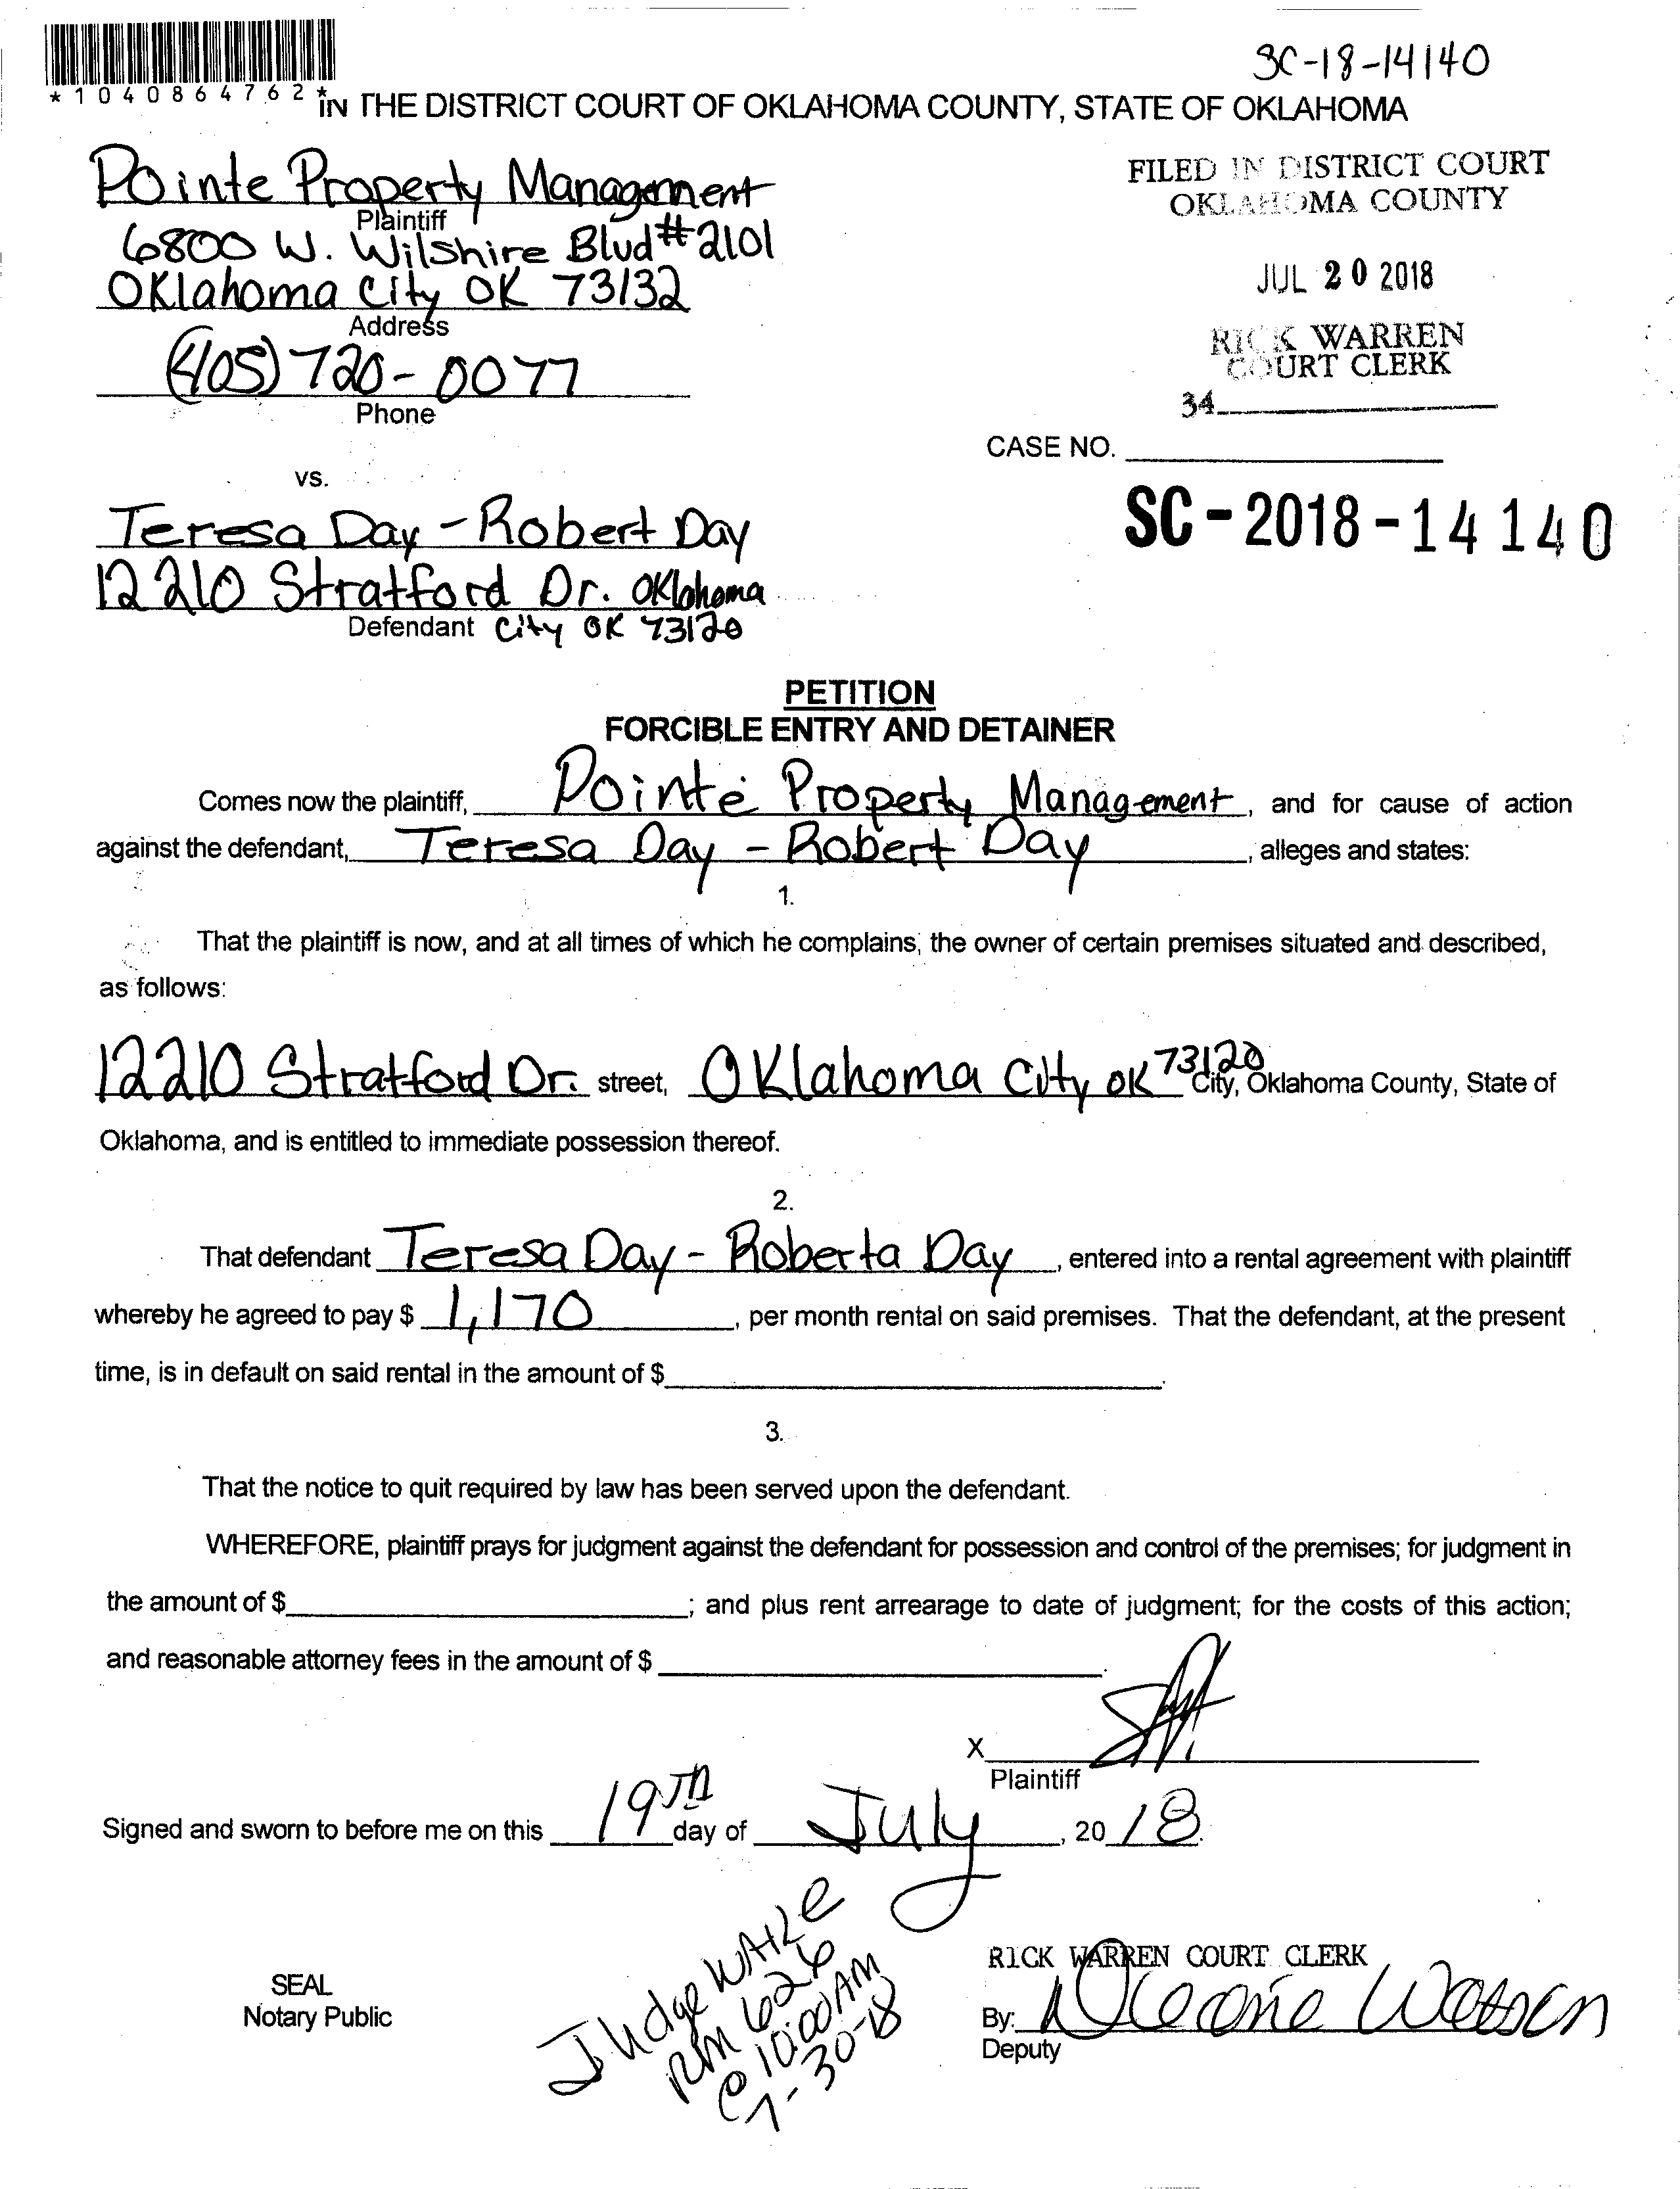 SC-18-14140
*1040864762*
IN THE DISTRICT COURT OF OKLAHOMA COUNTY, STATE OF OKLAHOMA
Pointe Property Management
Plaintiff
6800 W. Wilshire Blvd #2101
Oklahoma City OK 73132
Address
(405) 720-0077
Phone
FILED IN DISTRICT COURT
OKLAHOMA COUNTY
JUL 20 2018
RICK WARREN
COURT CLERK
34
CASE NO.
SC-2018-14140
vs.
Teresa Day - Robert Day
12210 Stratford Dr. Oklahoma
Defendant City OK 73120
PETITION
FORCIBLE ENTRY AND DETAINER
Comes now the plaintiff, Pointe Property Management, and for cause of action
against the defendant, Teresa Day - Robert Day, alleges and states:
1.
That the plaintiff is now, and at all times of which he complains, the owner of certain premises situated and described,
as follows:
12210 Stratford Dr. street, Oklahoma City OK 73120 City, Oklahoma County, State of
Oklahoma, and is entitled to immediate possession thereof.
2.
That defendant Teresa Day - Roberta Day, entered into a rental agreement with plaintiff
whereby he agreed to pay $ 1,170, per month rental on said premises. That the defendant, at the present
time, is in default on said rental in the amount of $.
3.
That the notice to quit required by law has been served upon the defendant.
WHEREFORE, plaintiff prays for judgment against the defendant for possession and control of the premises; for judgment in
the amount of $; and plus rent arrearage to date of judgment; for the costs of this action;
and reasonable attorney fees in the amount of $.
X
Plaintiff
Signed and sworn to before me on this 19TH day of July, 2018.
SEAL
Notary Public
Judge
RM 626
@ 10:00 AM
7-30-18
RICK WARREN COURT CLERK
By: Watson
Deputy